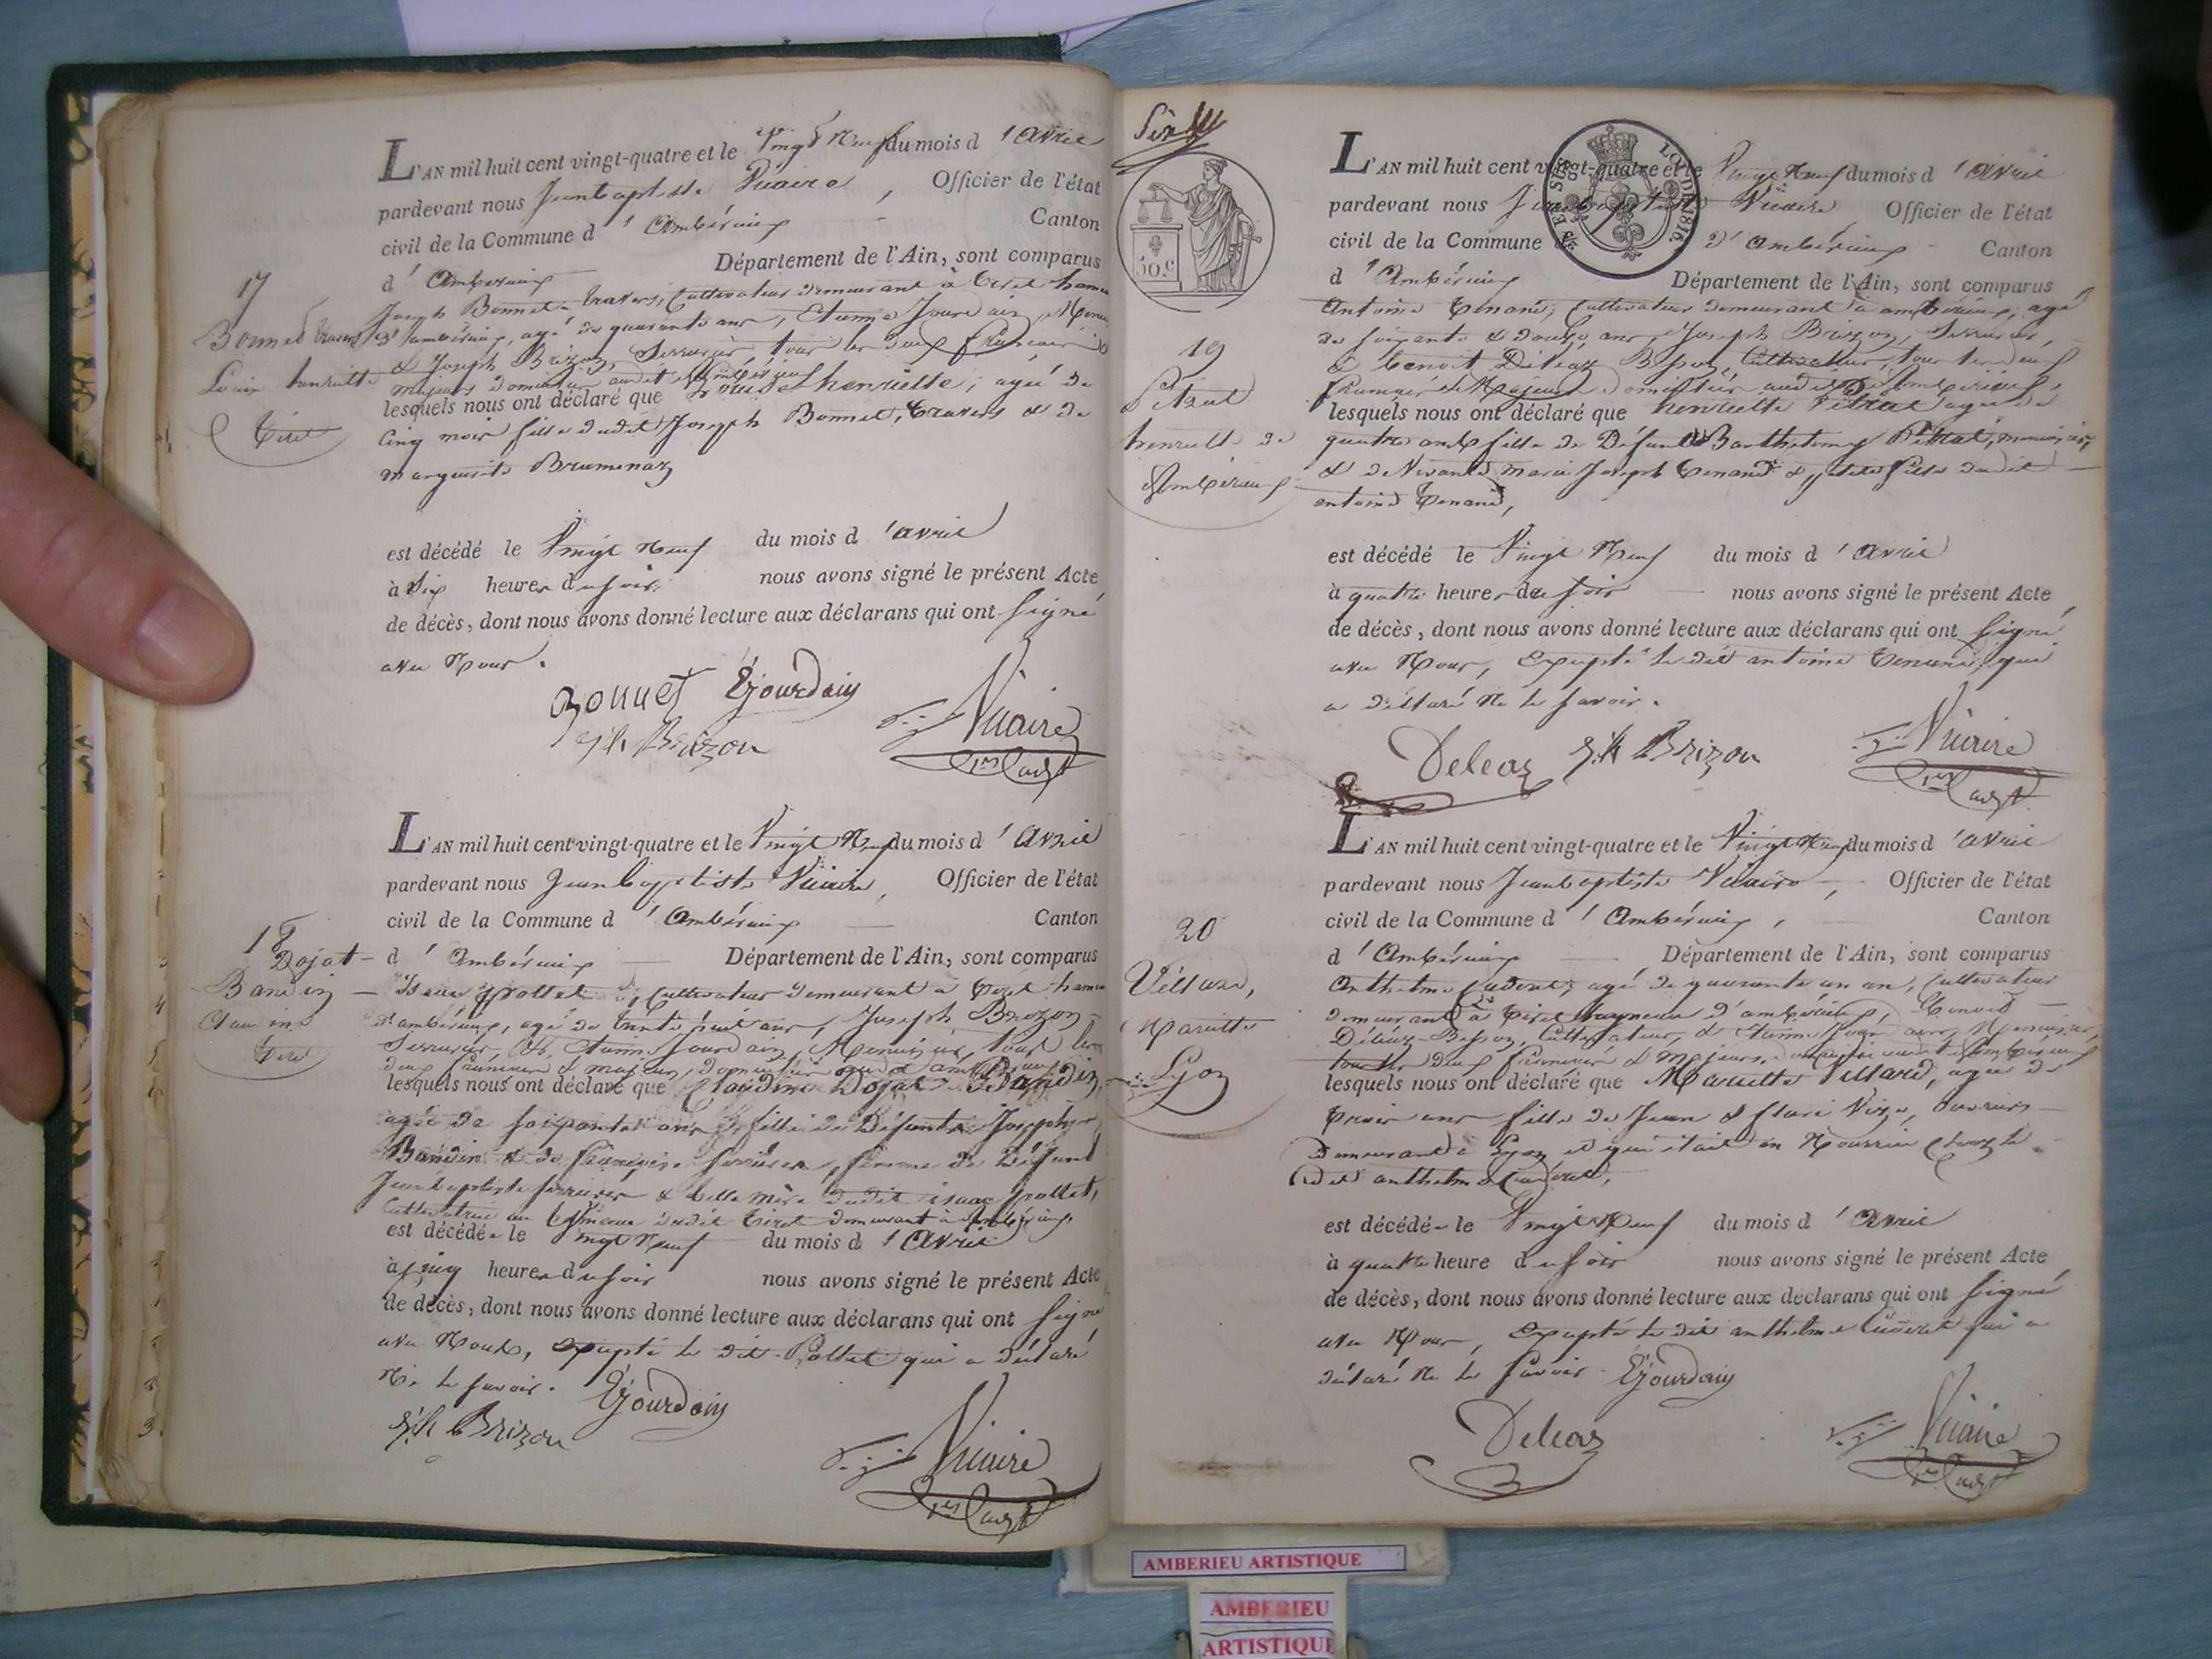 L'AN mil huit cent vingt-quatre et le Vingt Neuf du mois d'avril
pardevant nous Jean baptiste Vicaire, Officier de l'état
civil de la Commune d'ambérieux Canton
d'ambérieux Département de l'Ain, sont comparus
17
Bonnet travers
Louise henriette
Tiret
Joseph Bonnet travers, Cultivateur demeurant à tiret hameau
d'ambérieux, agé de quarante ans, Etienne Jourdain,
& Joseph Brizon, Serrurier, tous les deux français
majeurs domiciliés audit ambérieux
lesquels nous ont déclaré que Louise henriette, agée de
Cinq mois fille dudit Joseph Bonnet, travers & de
marguerite Brumenaz
est décédé le Vingt Neuf du mois d'avril
à Six heures du soir nous avons signé le présent Acte
de décès, dont nous avons donné lecture aux déclarans qui ont Signé
avec Nous.
Bonnet Ejourdain
Jh Brizon Vicaire
L'AN mil huit cent vingt-quatre et le Vingt Neuf du mois d'avril
pardevant nous Jean baptiste Vicaire, Officier de l'état
civil de la Commune d'ambérieux Canton
d'ambérieux Département de l'Ain, sont comparus
18
Dojat
Bandin
Claudine
Tiret
Isaac pollet, Cultivateur demeurant à tiret hameau
d'ambérieux, agé de trente huit ans, Joseph Brizon
Serrurier, & Etienne Jourdain, Menuisier, tous les
deux français & majeurs, domiciliés audit ambérieux
lesquels nous ont déclaré que Claudine Dojat Bandin
agée de soixante ans fille de Défunts Joseph
Bandin & de femme de Défunt
Jean baptiste & belle mère dudit isaac pollet,
Cultivatrice au hameau dudit tiret demeurant à ambérieux
est décédée le Vingt Neuf du mois d'avril
à cinq heures du soir nous avons signé le présent Acte
de décès, dont nous avons donné lecture aux déclarans qui ont Signé
avec Nous, excepté le dit Pollet qui a déclaré
Ne le savoir. Ejourdain
Jh Brizon
Vicaire
50 c
LOI DE 1816.
L'AN mil huit cent vingt-quatre et le Vingt Neuf du mois d'avril
pardevant nous Jean baptiste Vicaire Officier de l'état
civil de la Commune d'ambérieux Canton
d'ambérieux Département de l'Ain, sont comparus
19
Pétral
henriette de
Ambérieux
antoine tenand, Cultivateur demeurant à ambérieux, agé
de soixante & douze ans, Joseph Brizon, Serrurier,
& benoit Déléaz Besson, Cultivateur, tous les deux
français & Majeurs domiciliés audit ambérieux,
lesquels nous ont déclaré que henriette Pétral agée de
quatre ans fille de Défunt Barthelemy Pétral, menuisier,
& de Vivante marie Joseph tenand & petite fille dudit
antoine tenand,
est décédé le Vingt Neuf du mois d'avril
à quatre heures du soir nous avons signé le présent Acte
de décès, dont nous avons donné lecture aux déclarans qui ont Signé
avec Nous, excepté le dit antoine tenand qui
a déclaré Ne le savoir.
Deleaz Jh Brizon Vicaire
L'AN mil huit cent vingt-quatre et le Vingt Neuf du mois d'avril
pardevant nous Jean baptiste Vicaire, Officier de l'état
civil de la Commune d'ambérieux, Canton
d'ambérieux Département de l'Ain, sont comparus
20
Villard,
Mariette
Lyon
Anthelme Cuderet, agé de quarante un an, Cultivateur
demeurant à tiret hameau d'ambérieux, Benoit
Déléaz-Besson, Cultivateur, & Etienne Jourdain, Menuisier,
tous les deux français & majeurs, domiciliés audit ambérieux
lesquels nous ont déclaré que Mariette Villard, agée de
trois ans fille de Jean & Claire ouvriers
Demeurant à Lyon et qui était en Nourrice Chez le
dit anthelme Cuderet,
est décédée le Vingt Neuf du mois d'avril
à quatre heure du soir nous avons signé le présent Acte
de décès, dont nous avons donné lecture aux déclarans qui ont Signé
avec Nous, excepté le dit anthelme Cuderet qui a
déclaré Ne le Savoir. Ejourdain
Deleaz Vicaire
AMBERIEU ARTISTIQUE
AMBERIEU
ARTISTIQUE